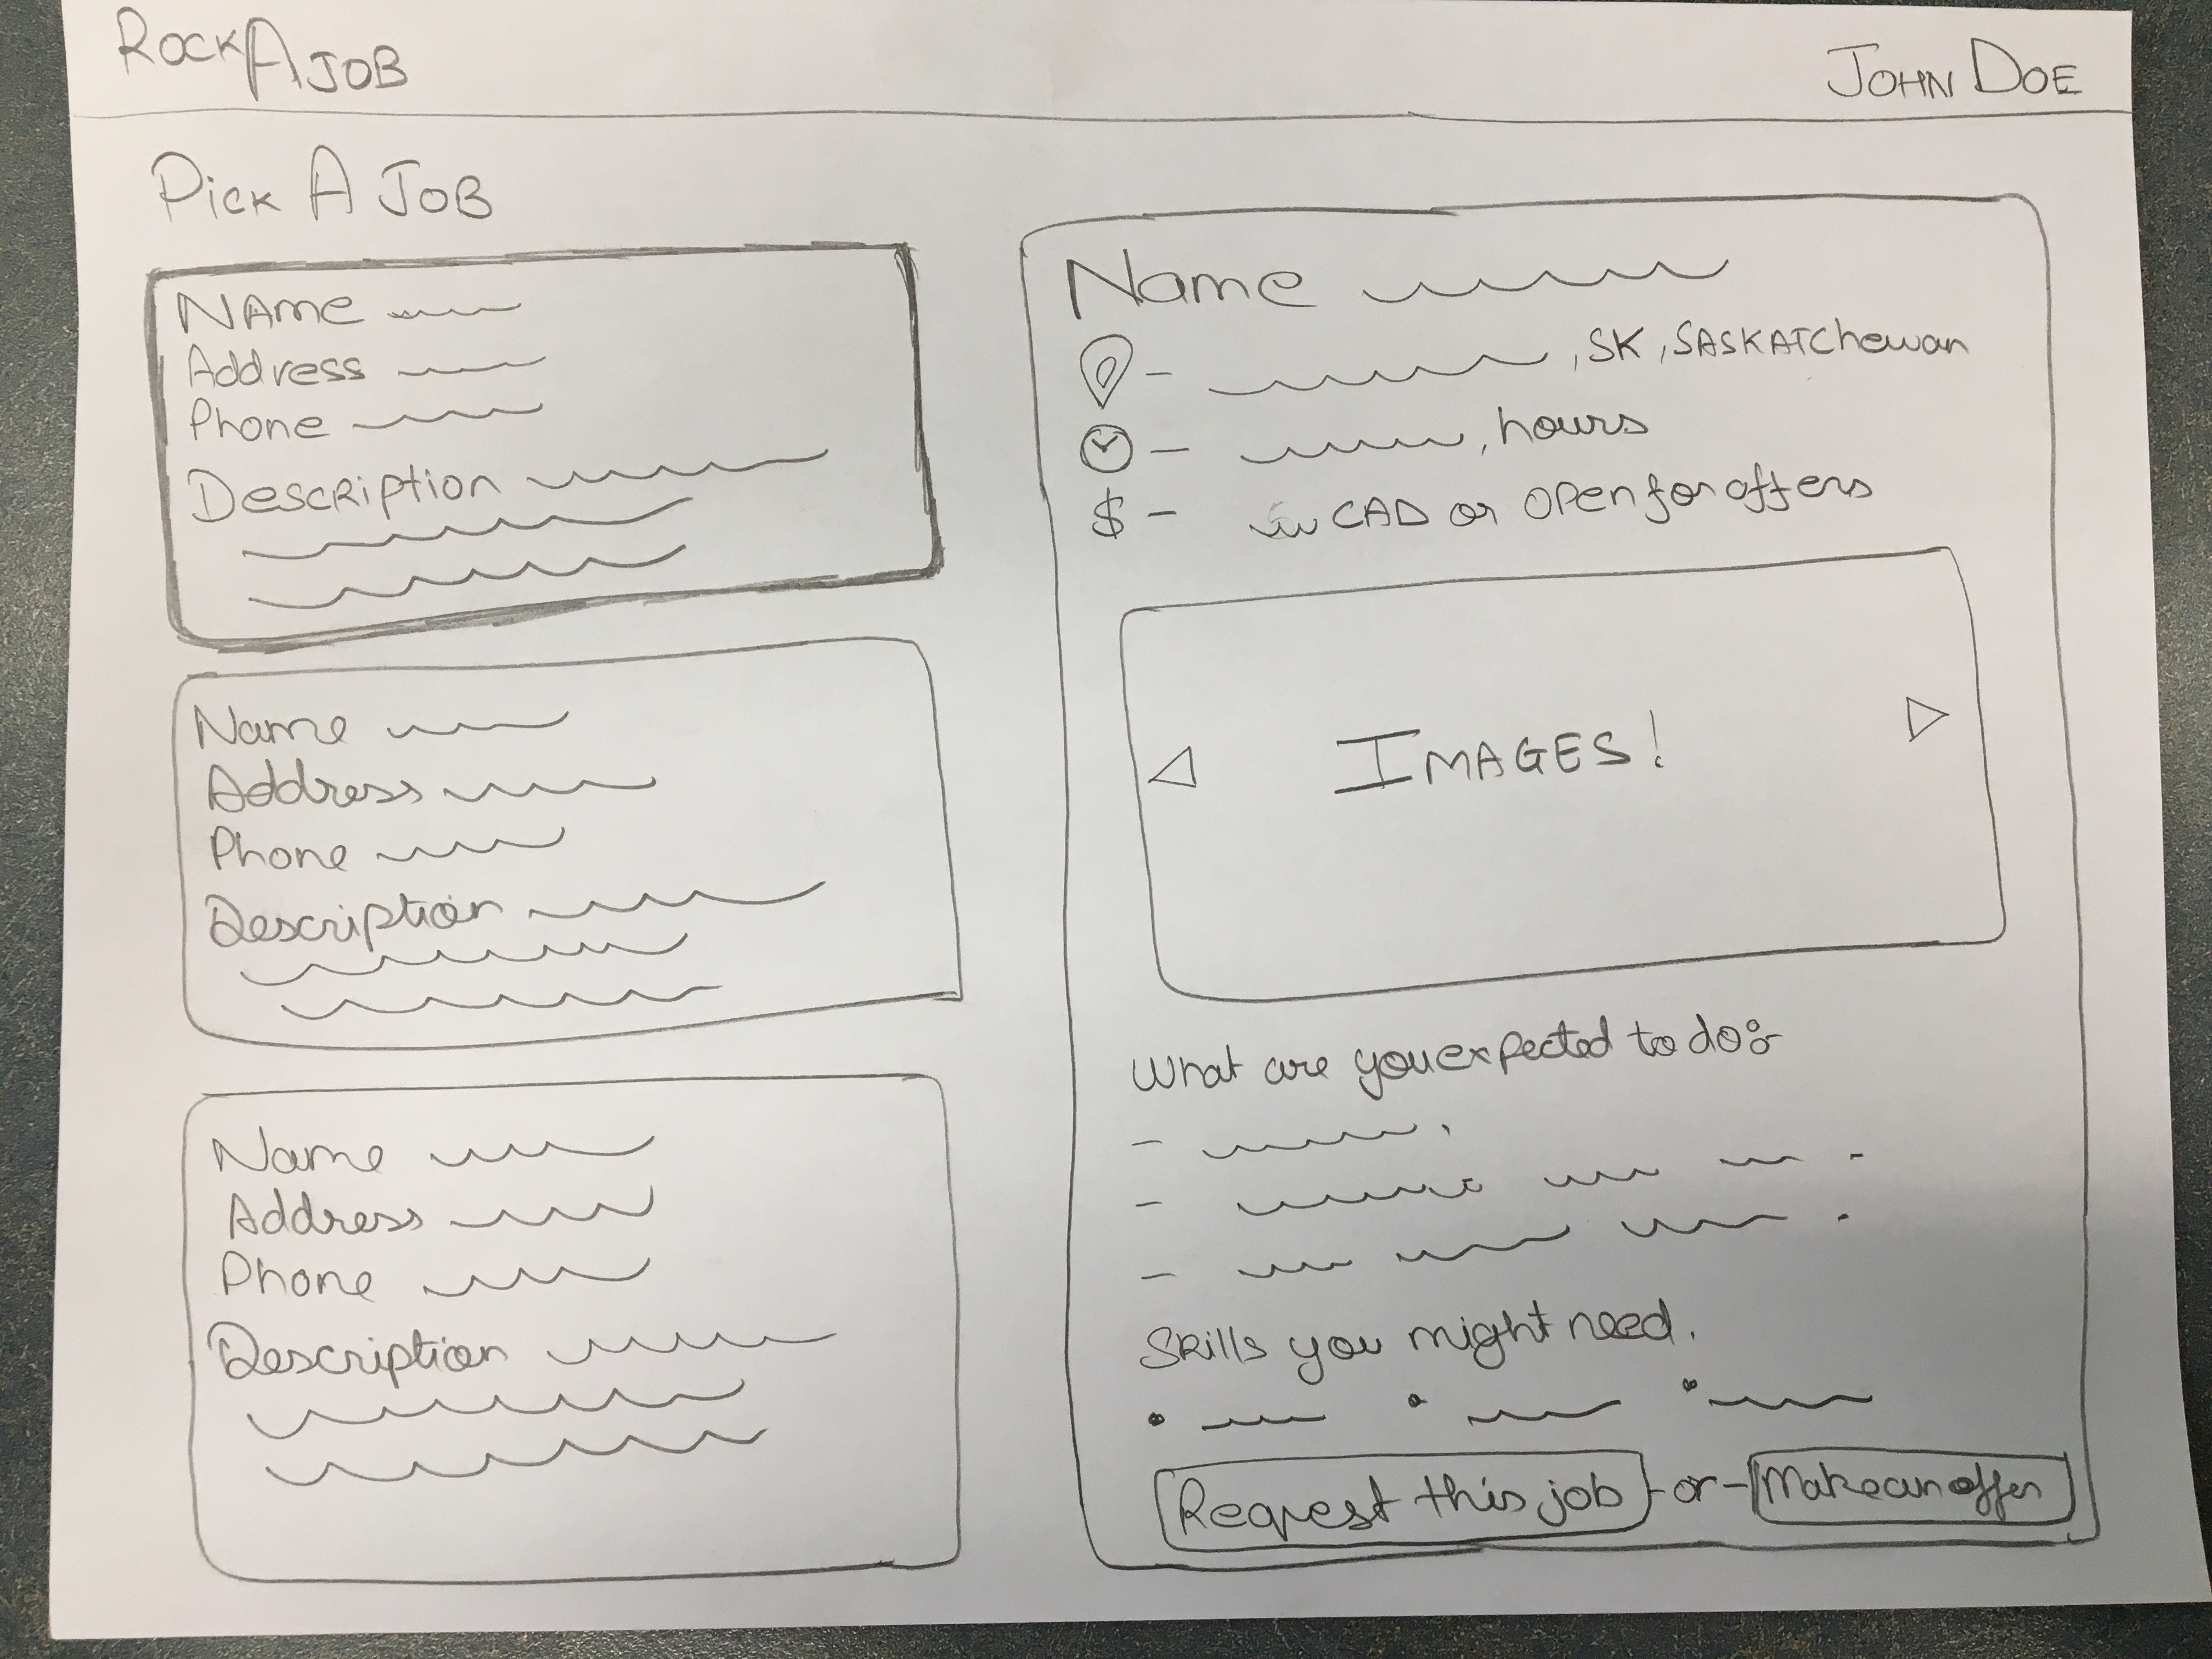 ROCK A JOB
JOHN DOE
Pick A JOB
NAme
Address
Phone
Description
Name
Address
Phone
Description
Name
Address
Phone
Description
Name
- , SK, SASKATChewan
- , hours
$ - CAD or OPen for offers
IMAGES!
What are you expected to do:-
-
-
-
Skills you might need.
• • •
Request this job -or- Make an offer